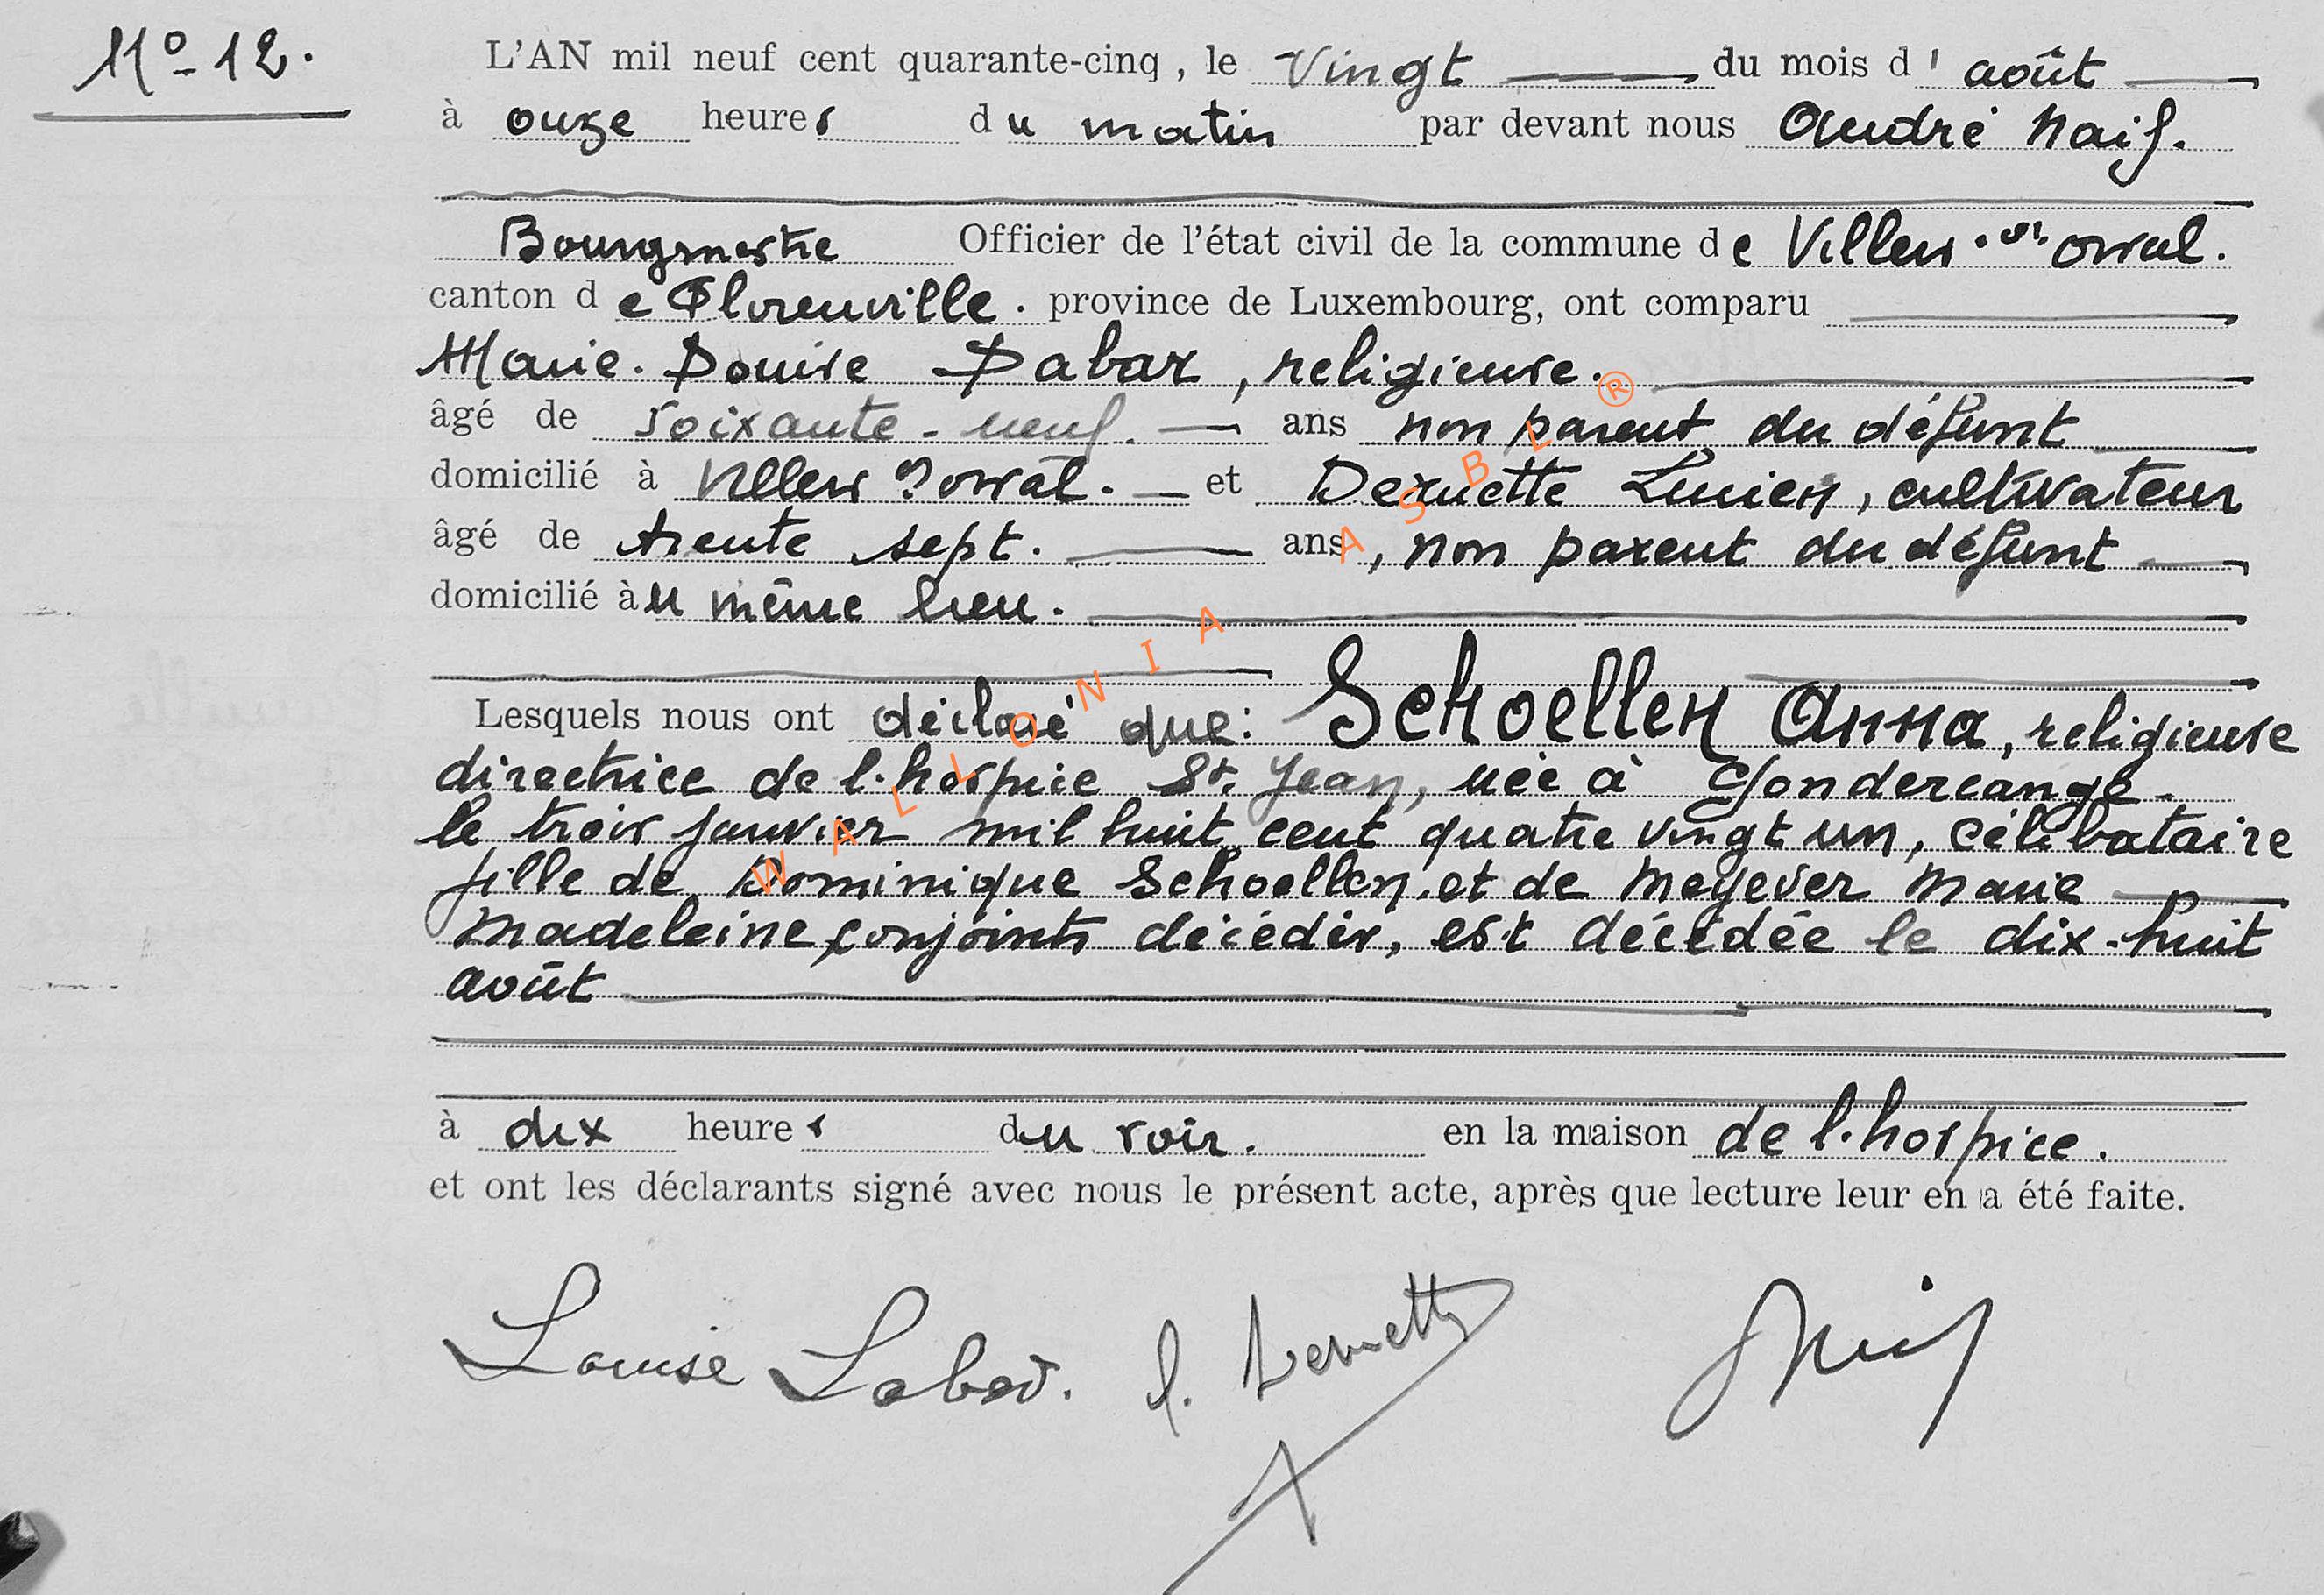 N° 12.
L'AN mil neuf cent quarante-cinq, le Vingt du mois d' août
à onze heures du matin par devant nous André Naif.
Bourgmestre Officier de l'état civil de la commune de Villers. dt. orval.
canton de Florenville. province de Luxembourg, ont comparu
Marie. Louise Labar, religieuse.
âgé de soixante-neuf. ans non parent du défunt
domicilié à Villers dt orval. et Dernette Lucien, cultivateur
âgé de trente sept. ans, non parent du défunt
domicilié àu même lieu.
Lesquels nous ont déclaré que: Schoellen Anna, religieuse
directrice de l'hospice St. Jean, née à Gonderange
le trois janvier mil huit cent quatre vingt un, célibataire
fille de Dominique Schoellen et de Meyever Marie
Madeleine, conjoints décédés, est décédée le dix-huit
août
à dix heures du soir. en la maison de l'hospice.
et ont les déclarants signé avec nous le présent acte, après que lecture leur en a été faite.
Louise Labar. l. Dernette Naif
WALLONIA ASBL ®